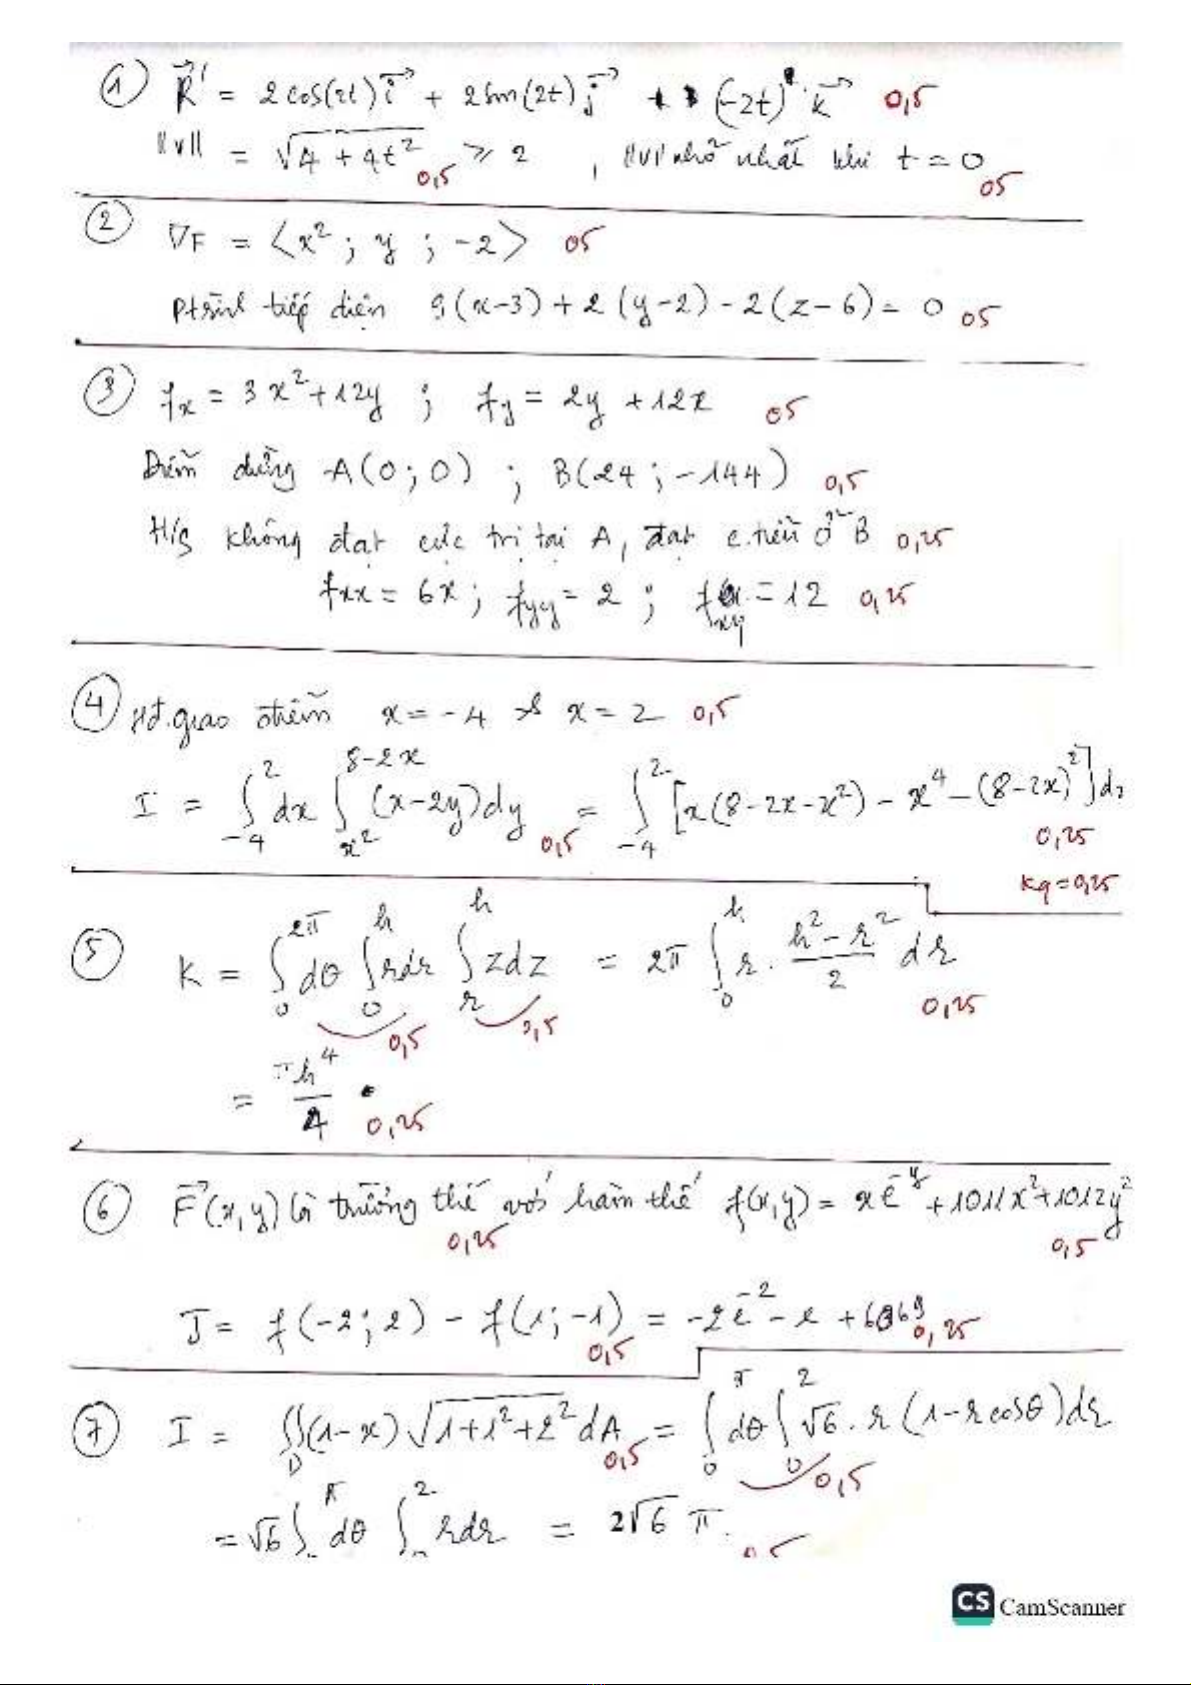 ① R⃗' = 2cos(2t) i⃗ + 2sin(2t) j⃗ + (-2t) · k⃗ 0,5
||v|| = √(4 + 4t²) 0,5 ≥ 2 , ||v|| nhỏ nhất khi t = 0 05
② ∇F = ⟨x² ; y ; -2⟩ 05
ptrình tiếp diện 9(x-3) + 2(y-2) - 2(z-6) = 0 05
③ fx = 3x² + 12y ; fy = 2y + 12x 05
Điểm dừng A(0;0) ; B(24 ; -144) 0,5
H/s không đạt cực trị tại A, đạt c.tiểu ở B 0,25
fxx = 6x ; fyy = 2 ; fxy = 12 0,25
④ Hđ.giao điểm x = -4 & x = 2 0,5
I = ∫₋₄² dx ∫_{x²}^{8-2x} (x-2y)dy 0,5 = ∫₋₄² [x(8-2x-x²) - x⁴ - (8-2x)²]dx 0,25
Kq = 0,25
⑤ K = ∫₀^{2π} dθ ∫₀^h rdr 0,5 ∫_r^h zdz 0,5 = 2π ∫₀^h r · (h² - r²)/2 dr 0,25
= πh⁴/4 · 0,25
⑥ F⃗(x,y) là trường thế 0,25 với hàm thế f(x,y) = xe^{-y} + 1011x² + 1012y² 0,5
J = f(-2;2) - f(1;-1) 0,5 = -2e^{-2} - e + 6069 0,25
⑦ I = ∬_D (1-x)√(1+1²+2²) dA 0,5 = ∫₀^π dθ ∫₀² √6 · r(1-r cosθ)dr 0,5
= √6 ∫^π dθ ∫² rdr = 2√6 π. 0,5
CS CamScanner